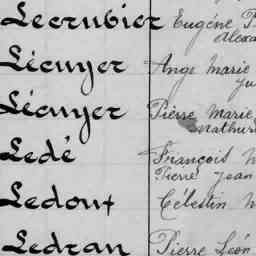 Lecrubier Eugène
Alexa
Lécuyer Ange Marie
Ju
Lécuyer Pierre Marie
Mathur
Ledé François M
Pierre Jean
Ledout Célestin M
Ledran Pierre Léon